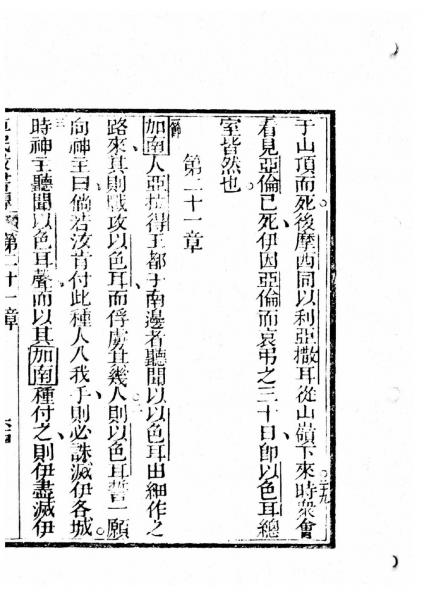 于山頂而死後摩西同以利亞撒耳從山嶺下來時衆會
二十九
看見亞倫已死伊因亞倫而哀弔之三十日即以色耳總
室皆然也
第二十一章
節
加南人亞拉得王都于南邊者聽聞以以色耳出細作之
路來其則戰攻以色耳而俘虜其幾人則以色耳誓一願
二
向神主曰倘若汝肯付此種人入我手則必誅滅伊各城
三
時神主聽聞以色耳聲而以其加南種付之則伊盡滅伊
第二十一章